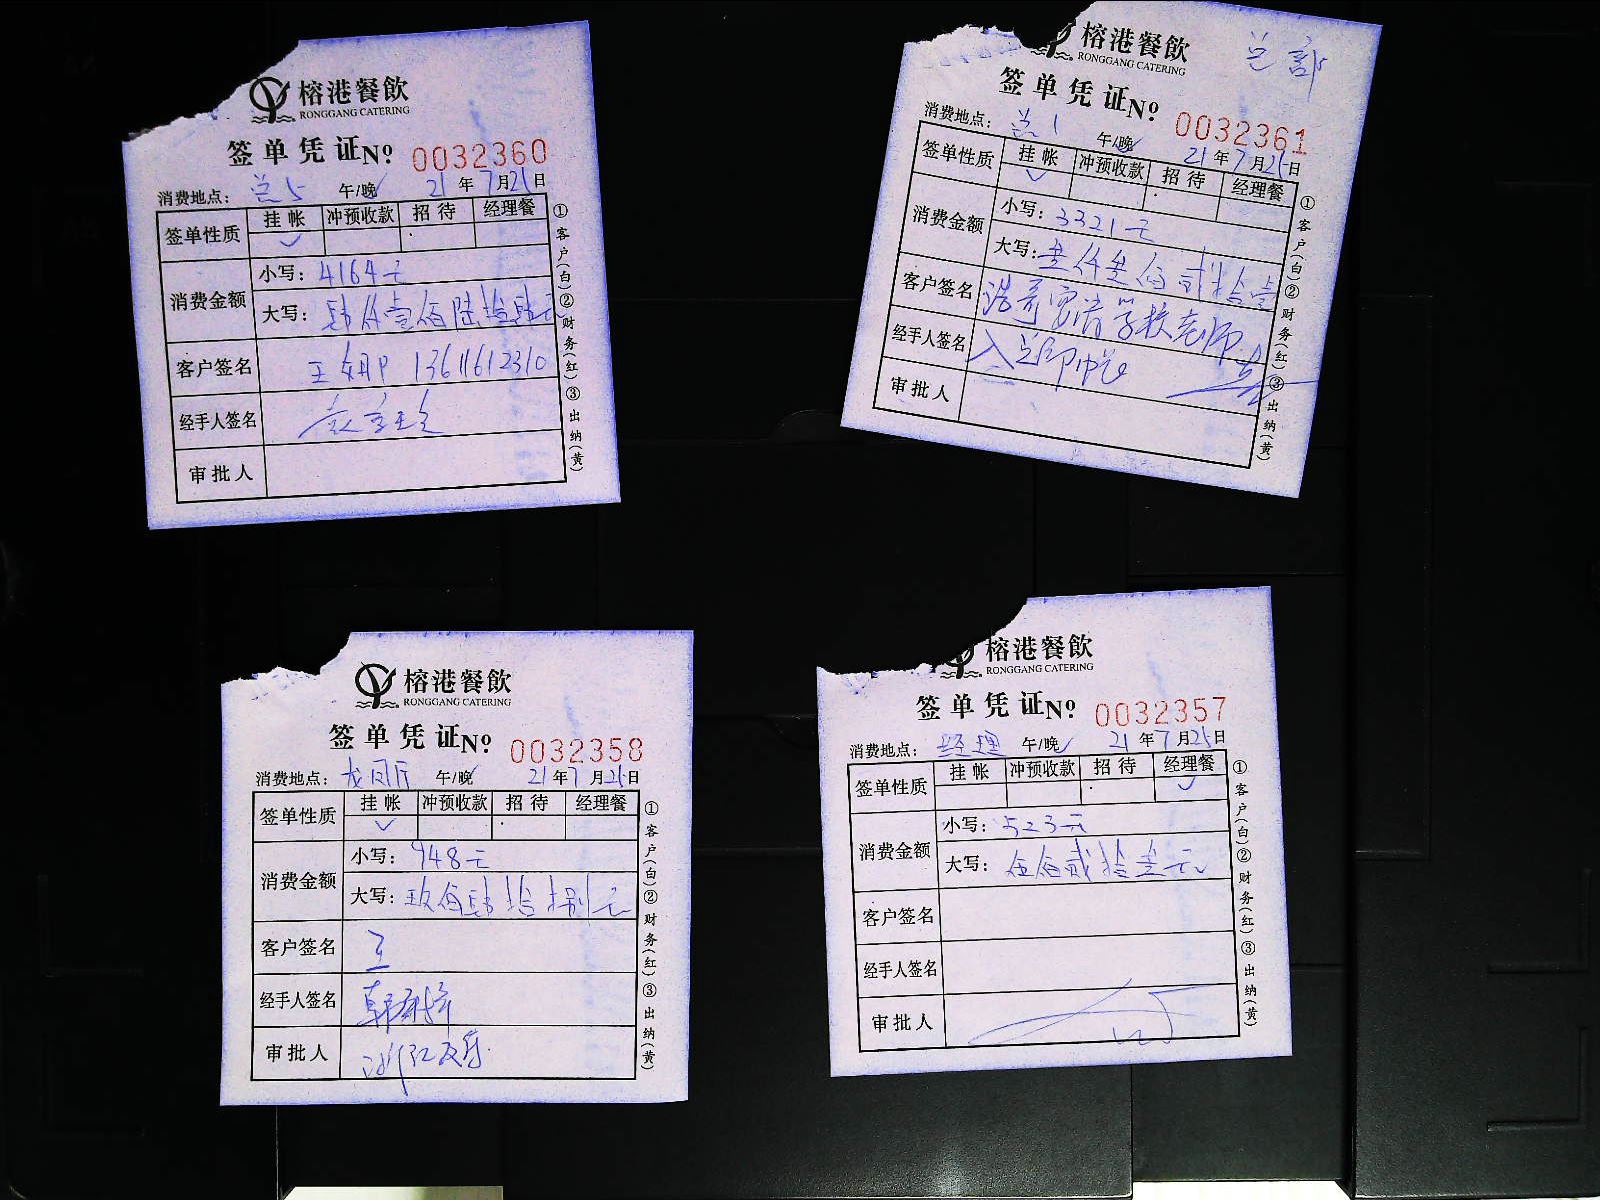 榕港餐飲
RONGGANG CATERING
签单凭证No 0032360
消费地点: 总5 午/晚 21年7月25日
签单性质 挂帐 冲预收款 招待 经理餐
消费金额 小写: 4164元
大写: 肆仟壹佰陆拾肆元
客户签名 王 13611612310
经手人签名
审批人
①客户(白)②财务(红)③出纳(黄)
榕港餐飲 总部
RONGGANG CATERING
签单凭证No 0032361
消费地点: 总1 午/晚 21年7月25日
签单性质 挂帐 冲预收款 招待 经理餐
消费金额 小写: 3321元
大写: 叁仟叁佰贰拾壹
客户签名 学校老师
经手人签名
审批人
①客户(白)②财务(红)③出纳(黄)
榕港餐飲
RONGGANG CATERING
签单凭证No 0032358
消费地点: 龙凤厅 午/晚 21年7月25日
签单性质 挂帐 冲预收款 招待 经理餐
消费金额 小写: 948元
大写: 玖佰肆拾捌元
客户签名 王
经手人签名
审批人
①客户(白)②财务(红)③出纳(黄)
榕港餐飲
RONGGANG CATERING
签单凭证No 0032357
消费地点: 经理 午/晚 21年7月25日
签单性质 挂帐 冲预收款 招待 经理餐
消费金额 小写: 523元
大写: 伍佰贰拾叁元
客户签名
经手人签名
审批人
①客户(白)②财务(红)③出纳(黄)